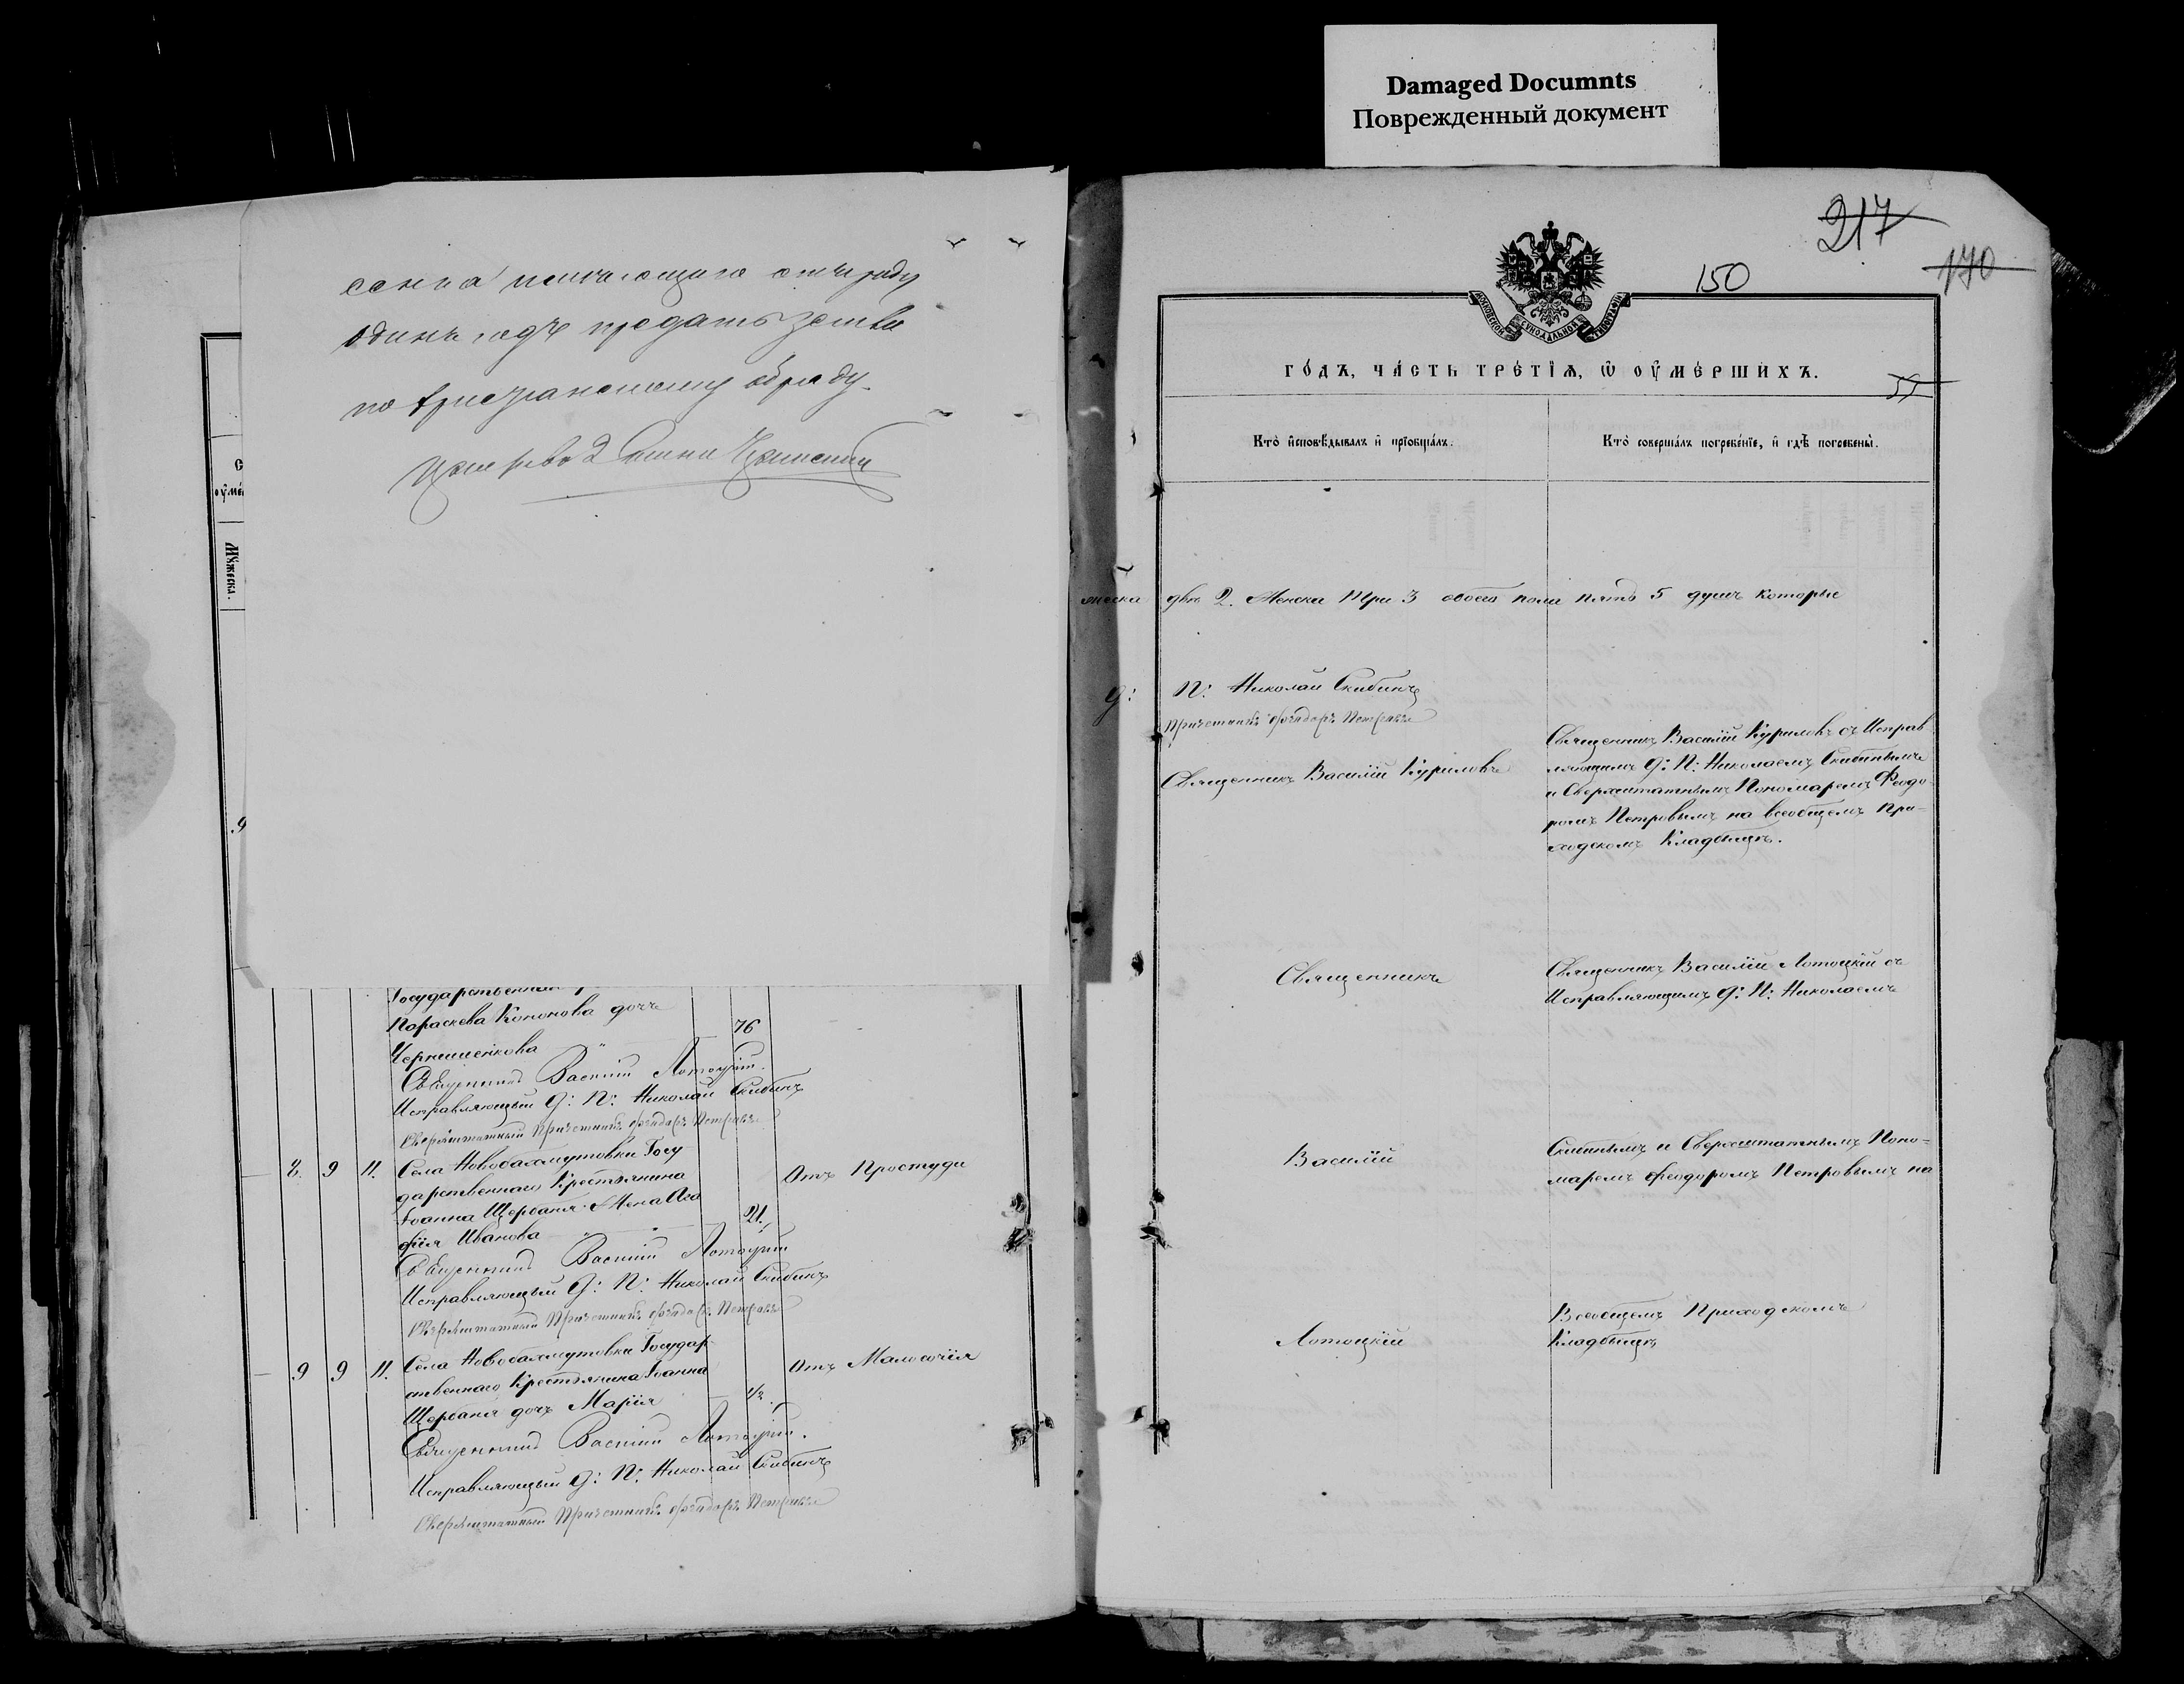 Damaged Documnts
Поврежденный документ
217
150
170
одинъ годъ предать земли
по християнскому обряду
Мꙋжеска.
Государственн
Параскева Кононова дочь
76
Чернишенкова
Священникъ Василій Лотоцкій.
Исправляющій Д: П: Николай Скибинъ
Сверхштатный Причетникъ Феодоръ Петровъ
8. 9 11. Села Новобахмутовки Госу
дарственнаго Крестьянина
Отъ Простуди
Іоанна Щербаня Жена Ага
21.
фія Иванова
Священникъ Василій Лотоцкій
Исправляющій Д: П: Николай Скибинъ
Сверхштатный Причетникъ Феодоръ Петровъ
9 9 11. Села Новобахмутовки Государ-
ственнаго Крестьянина Іоанна
Отъ Малосочія
Щербаня дочь Марія
1/2.
Священникъ Василій Лотоцкій.
Исправляющій Д: П: Николай Скибинъ
Сверхштатный Причетникъ Феодоръ Петровъ
МОСКОВСКОЙ СѴНОДАЛЬНОЙ ТИПОГРАФІИ
ГО́ДЪ, ЧА́СТЬ ТРЕ́ТІѦ, Ѿ ОУ҆МЕ́РШИХЪ.
Кто̀ и҆сповѣ́дывалъ и҆ прїобща́лъ.
Кто̀ соверша́лъ погребе́нїе, и҆ гдѣ̀ погребены̀.
двѣ 2. Женска Три 3 обоего пола пять 5 душъ которые
Д: П: Николай Скибинъ
Причетникъ Феодоръ Петровъ
Священникъ Василій Куриловъ
Священникъ Василій Куриловъ съ Исправ
ляющимъ Д: П: Николаемъ Скибинымъ
и Сверхштатнымъ Пономаремъ Феодо-
ромъ Петровымъ на всеобщемъ При-
ходскомъ Кладбищѣ.
Священникъ
Священникъ Василій Лотоцкій съ
Исправляющимъ Д: П: Николаемъ
Василій
Скибинымъ и Сверхштатнымъ Поно-
маремъ Феодоромъ Петровымъ на
Лотоцкій
Всеобщемъ Приходскомъ
Кладбищѣ